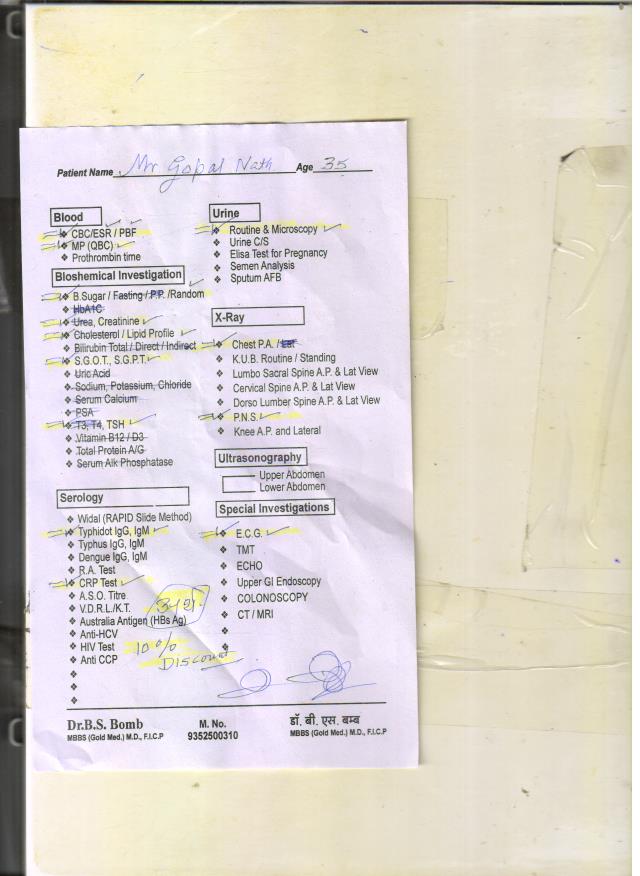 Patient Name Mr Gopal Nath Age 35
Blood
❖ CBC/ESR / PBF
❖ MP (QBC)
❖ Prothrombin time
Bioshemical Investigation
❖ B.Sugar / Fasting / P.P. /Random
❖ HbA1C
❖ Urea, Creatinine
❖ Cholesterol / Lipid Profile
❖ Bilirubin Total / Direct / Indirect
❖ S.G.O.T., S.G.P.T.
❖ Uric Acid
❖ Sodium, Potassium, Chloride
❖ Serum Calcium
❖ PSA
❖ T3, T4, TSH
❖ Vitamin B12 / D3
❖ Total Protein A/G
❖ Serum Alk Phosphatase
Serology
❖ Widal (RAPID Slide Method)
❖ Typhidot IgG, IgM
❖ Typhus IgG, IgM
❖ Dengue IgG, IgM
❖ R.A. Test
❖ CRP Test
❖ A.S.O. Titre
❖ V.D.R.L./K.T.
❖ Australia Antigen (HBs Ag)
❖ Anti-HCV
❖ HIV Test 10%
❖ Anti CCP Discount
Urine
❖ Routine & Microscopy
❖ Urine C/S
❖ Elisa Test for Pregnancy
❖ Semen Analysis
❖ Sputum AFB
X-Ray
❖ Chest P.A. / Lat
❖ K.U.B. Routine / Standing
❖ Lumbo Sacral Spine A.P. & Lat View
❖ Cervical Spine A.P. & Lat View
❖ Dorso Lumber Spine A.P. & Lat View
❖ P.N.S.
❖ Knee A.P. and Lateral
Ultrasonography
Upper Abdomen
Lower Abdomen
Special Investigations
❖ E.C.G.
❖ TMT
❖ ECHO
❖ Upper GI Endoscopy
❖ COLONOSCOPY
❖ CT / MRI
Dr.B.S. Bomb
MBBS (Gold Med.) M.D., F.I.C.P
M. No.
9352500310
डॉ. बी. एस. बम्ब
MBBS (Gold Med.) M.D., F.I.C.P